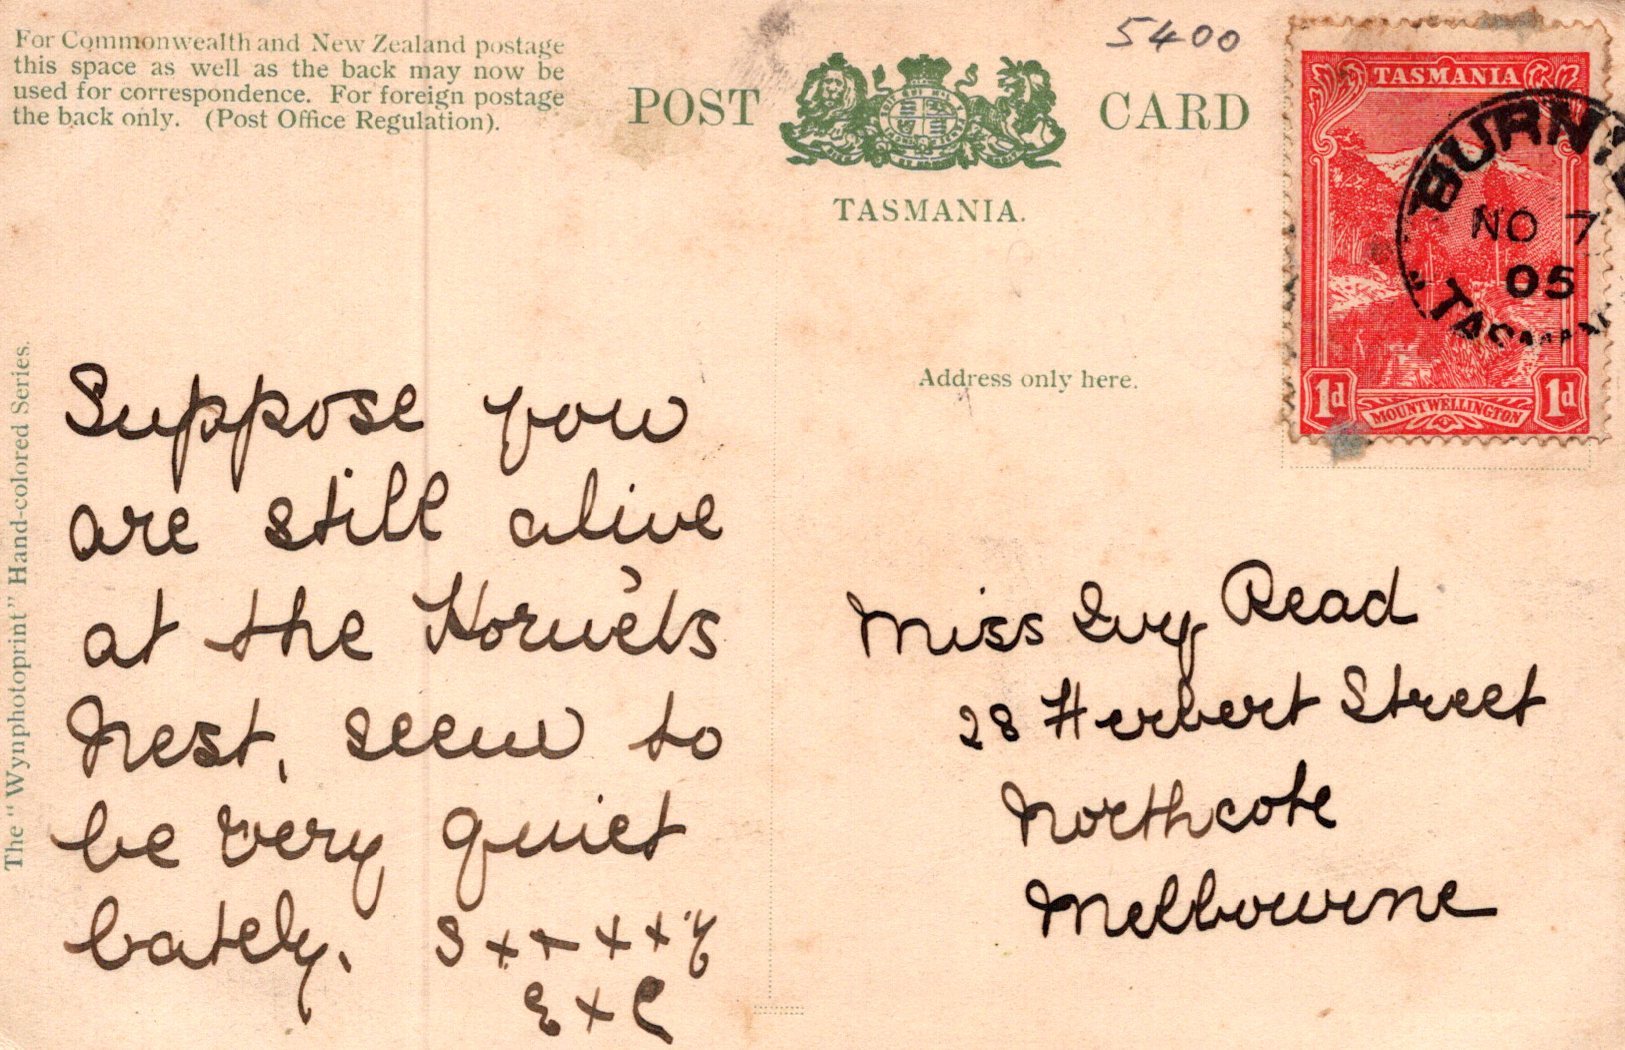 For Commonwealth and New Zealand postage
this space as well as the back may now be
used for correspondence. For foreign postage
the back only. (Post Office Regulation).
5400
POST CARD
TASMANIA.
TASMANIA
BURNIE
NO 7
05
TASMANIA
1d MOUNT WELLINGTON 1d
Address only here.
The "Wynphotoprint" Hand-colored Series.
Suppose you
are still alive
at the Hornets
Nest, seem to
be very quiet
lately. S x x x x y
E x C
Miss Ivy Read
28 Herbert Street
Northcote
Melbourne